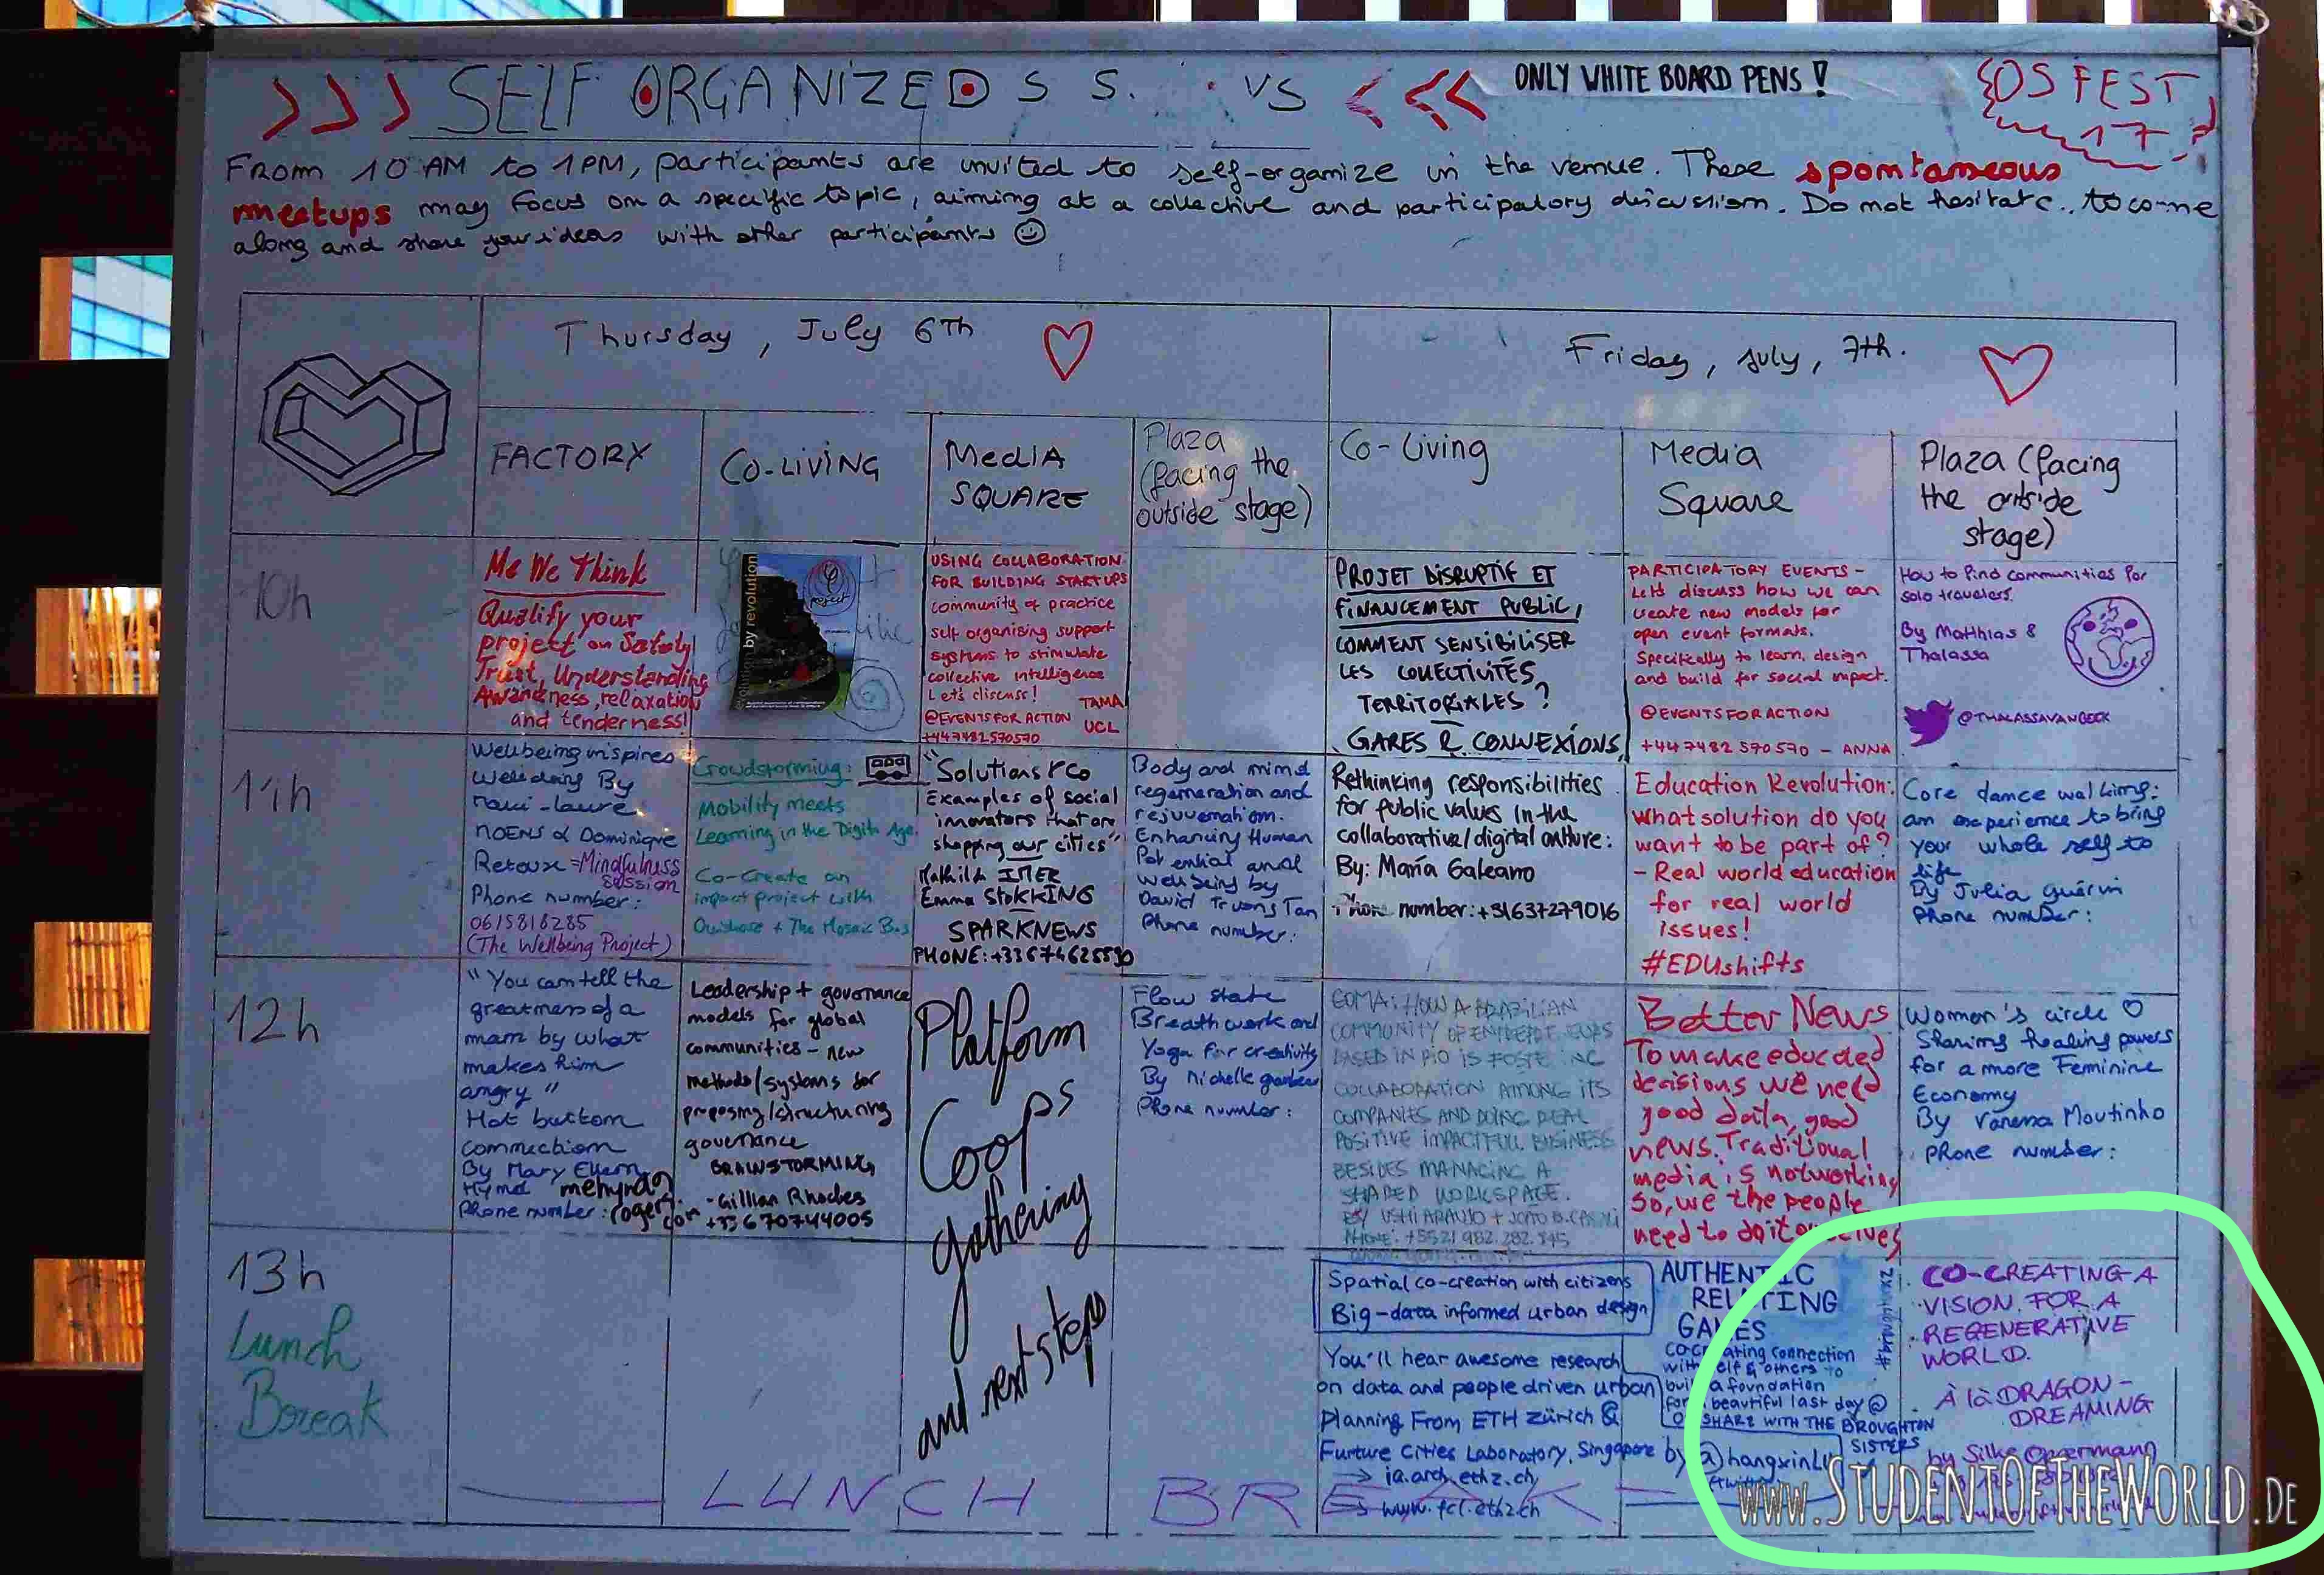 >>> SELF ORGANIZED S S. VS <<<
ONLY WHITE BOARD PENS!
OS FEST
17
From 10 AM to 1PM, participants are invited to self-organize in the venue. These spontaneous
meetups may focus on a specific topic, aiming at a collective and participatory discussion. Do not hesitate.. to come
along and share your ideas with other participants ☺
Thursday, July 6Th
Friday, July, 7th.
FACTORY
CO-LIVING
MEDIA
SQUARE
Plaza
(facing the
outside stage)
Co-Living
Media
Square
Plaza (facing
the outside
stage)
10h
Me We Think
Qualify your
project on Safety
Trust, Understanding
Awareness, relaxation
and tenderness!
by revolution
USING COLLABORATION
FOR BUILDING STARTUPS
community of practice
self organising support
systems to stimulate
collective intelligence
Let's discuss!
TAMA
@EVENTSFORACTION
UCL
+447482570570
PROJET DISRUPTIF ET
FINANCEMENT PUBLIC,
COMMENT SENSIBILISER
LES COLLECTIVITÉS
TERRITORIALES ?
GARES & CONNEXIONS
PARTICIPATORY EVENTS -
Lets discuss how we can
create new models for
open event formats.
Specifically to learn, design
and build for social impact.
@EVENTSFORACTION
+447482 570570 - ANNA
How to find communities for
solo travelers.
By Matthias &
Thalassa
@THALASSAVANBEEK
11h
Wellbeing inspires
Welldoing By
NOENS & Dominique
Retoux = Mindfulness
session
Phone number:
0615818285
(The Wellbeing Project)
Crowdstorming:
Mobility meets
Learning in the Digital Age.
Co-Create an
impact project with
Ouishare + The Mosaic Bus
"Solutions & Co
Examples of social
innovators that are
shapping our cities"
Emma STOKKING
SPARKNEWS
PHONE: +33674625530
Body and mind
regeneration and
rejuvenation.
Enhancing Human
Potential and
wellbeing by
David Truong Tan
Phone number:
Rethinking responsibilities
for public values in the
collaborative/digital culture:
By: María Galeano
Phone number: +31637279016
Education Revolution:
What solution do you
want to be part of?
- Real world education
for real world
issues!
#EDUshifts
Core dance walking:
an experience to bring
your whole self to
life
By Julia Guérin
Phone number:
12h
"You can tell the
greatness of a
man by what
makes him
angry"
Hot button
connection
By Mary Ellen
Phone number:
Leadership + governance
models for global
communities - new
methods/systems for
proposing/structuring
governance
BRAINSTORMING
- Gillian Rhodes
+33670744005
Platform
Coops
gathering
and next steps
Flow state
Breathwork and
Yoga for creativity
By Michelle
Phone number:
GOMA: HOW A BRAZILIAN
COMMUNITY OF ENTREPRENEURS
BASED IN RIO IS FOSTERING
COLLABORATION AMONG ITS
COMPANIES AND DOING REAL
POSITIVE IMPACTFULL BUSINESS
BESIDES MANAGING A
SHARED WORKSPACE.
Better News
To make educated
decisions we need
good data, good
news. Traditional
media is not working
so, we the people
need to do it ourselves
Women's circle ♡
Sharing healing powers
for a more Feminine
Economy
By Vanena Moutinho
phone number:
13h
Lunch
Break
LUNCH BREAK
Spatial co-creation with citizens
Big-data informed urban design
You'll hear awesome research
on data and people driven urban
Planning From ETH Zürich &
Furture Cities Laboratory, Singapore by @hangxinLu
→ ia.arch.ethz.ch
→ www.fcl.ethz.ch
AUTHENTIC
RELATING
GAMES
co-creating connection
with self & others to
build a foundation
for a beautiful last day @
OUISHARE WITH THE BROUGHTON
SISTERS
CO-CREATING A
VISION FOR A
REGENERATIVE
WORLD.
À là DRAGON-
DREAMING
by Silke Oppermann
www.STUDENTOFTHEWORLD.DE